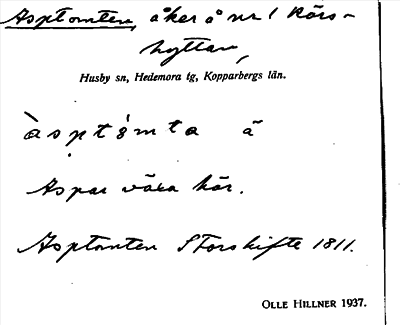 Asptomten, åker å nr 1 Rörs-
hyttan,
Husby sn, Hedemora tg, Kopparbergs län.
àsptòmta ä
Aspar växa här.
Asptomten Storskifte 1811.
OLLE HILLNER 1937.